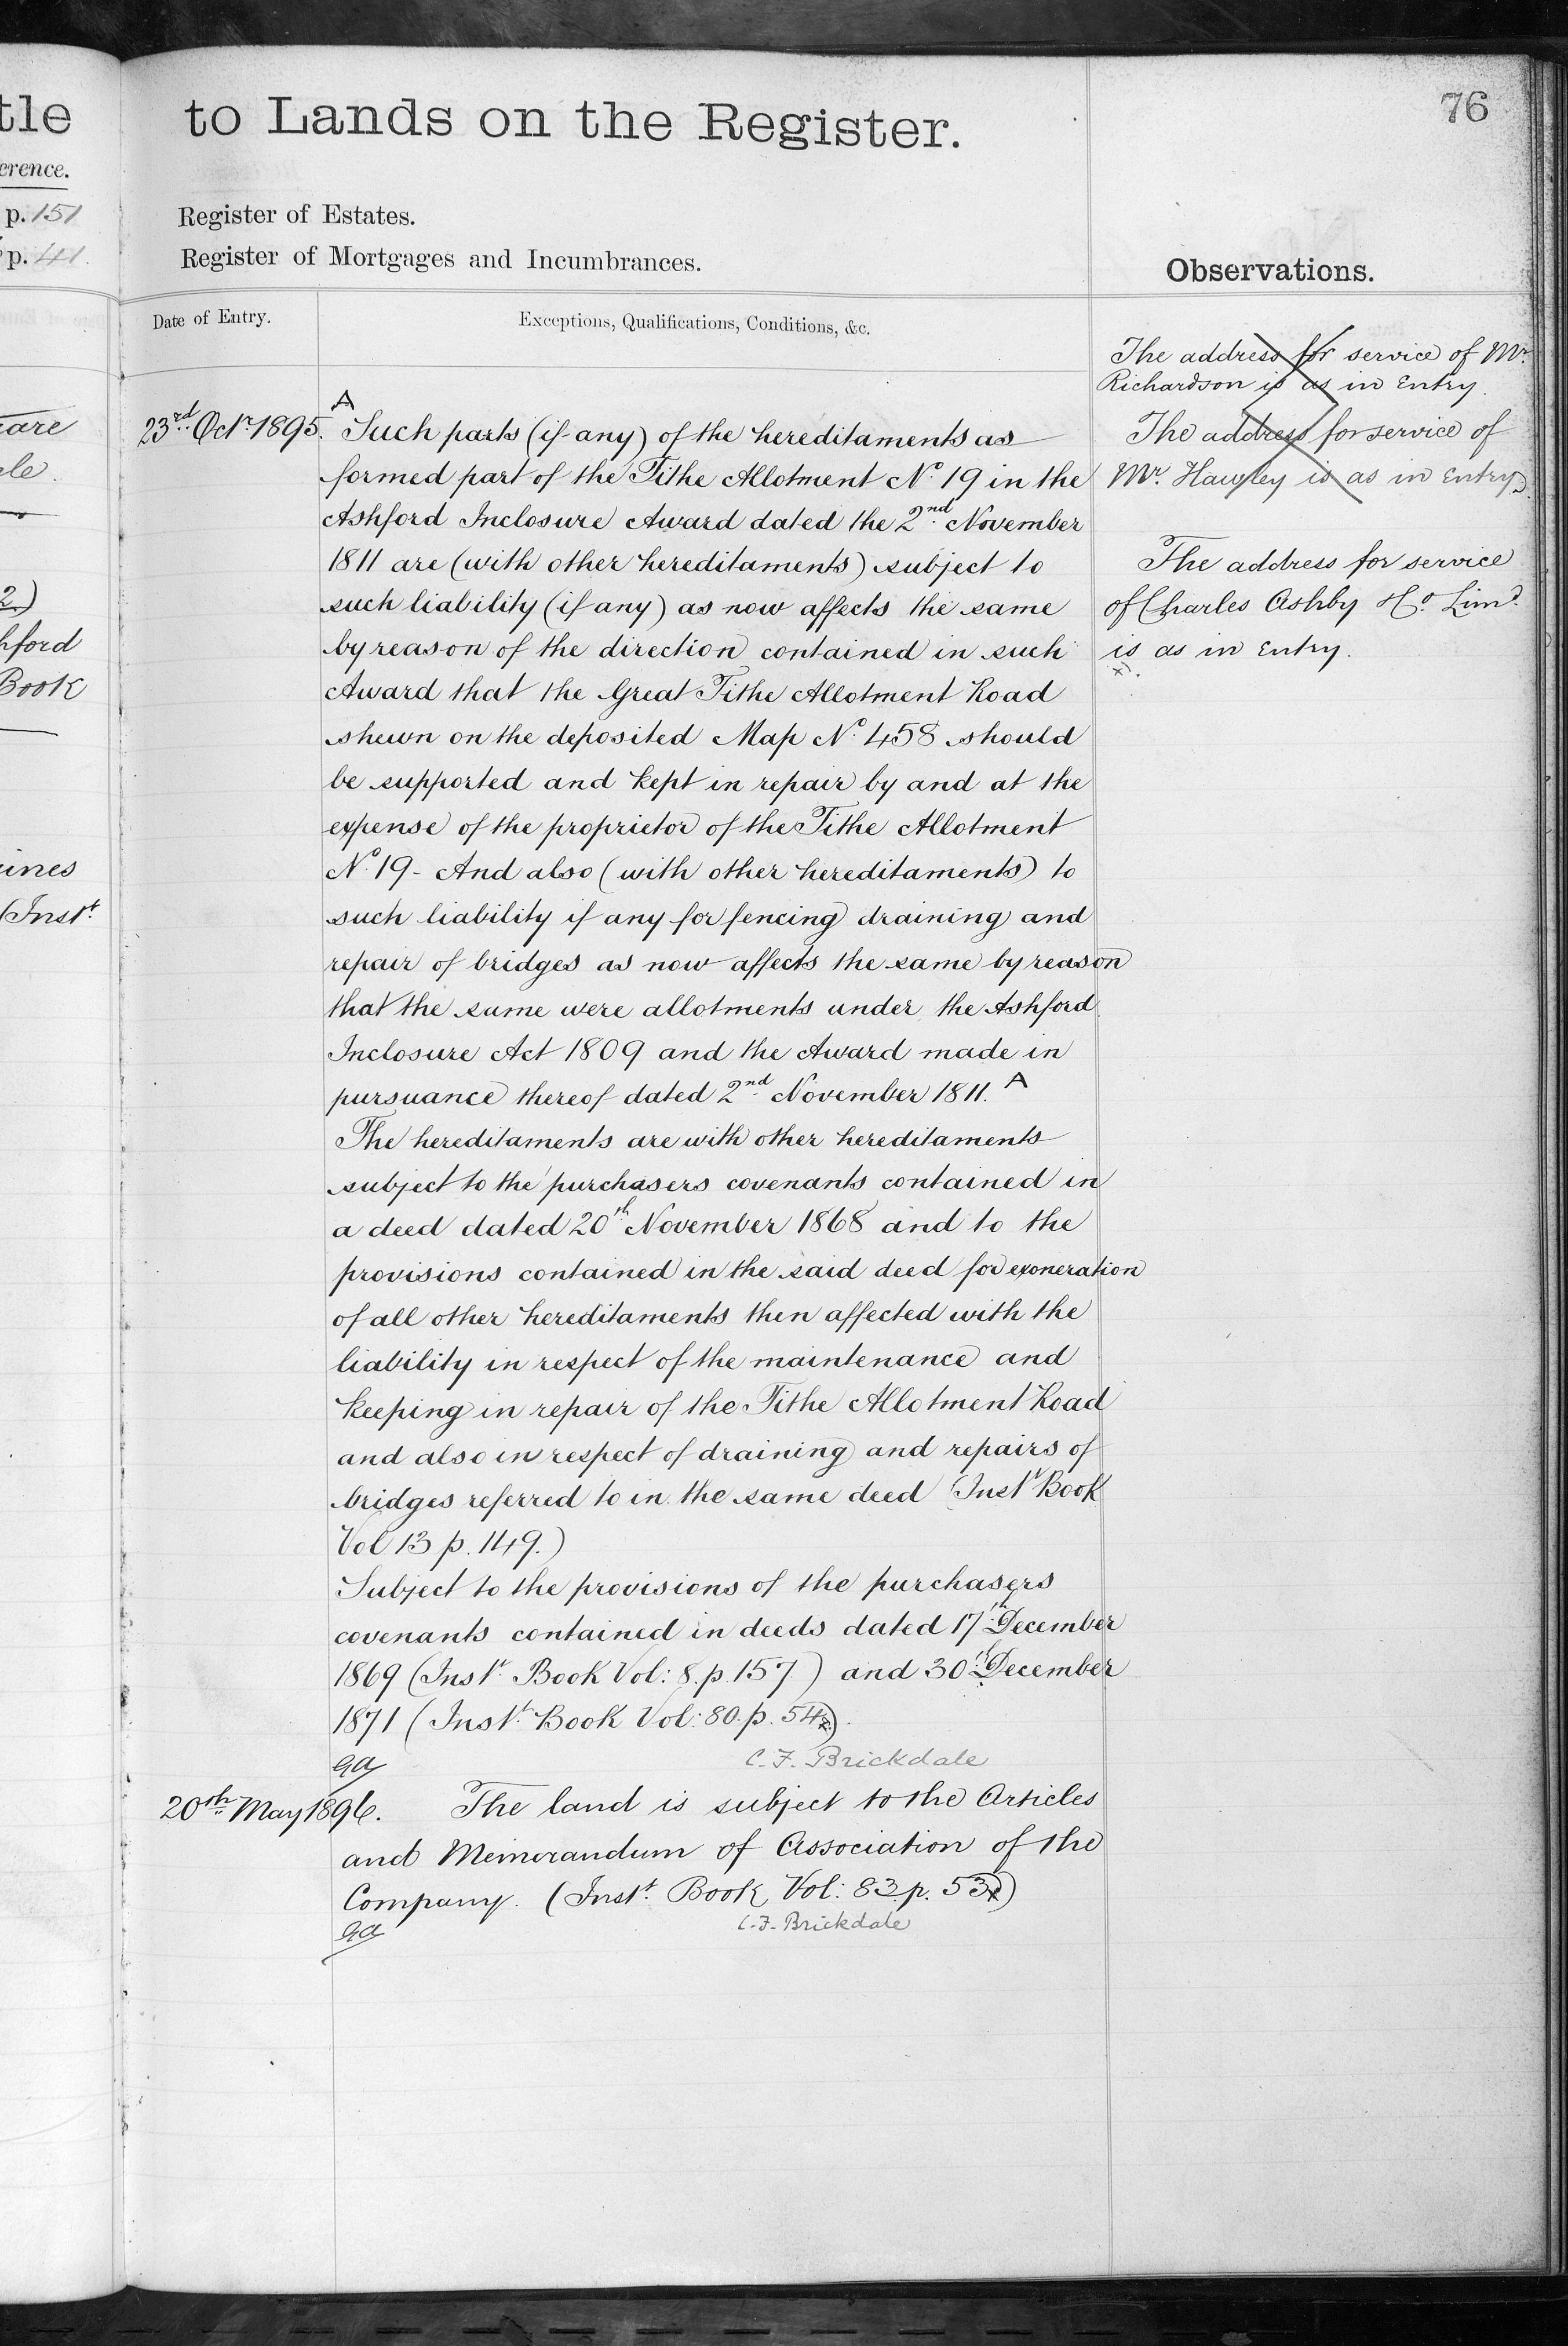 tle
erence.
p. 151
p. 41.
are
cle.
2)
hford
Book
ines
(Inst.t
to Lands on the Register.
76
Register of Estates.
Register of Mortgages and Incumbrances.
Observations.
Date of Entry.
Exceptions, Qualifications, Conditions, &c.
23rd Octr 1895.
A
Such parts (if any) of the hereditaments as
formed part of the Tithe Allotment No. 19 in the
Ashford Inclosure Award dated the 2nd November
1811 are (with other hereditaments) subject to
such liability (if any) as now affects the same
by reason of the direction contained in such
Award that the Great Tithe Allotment Road
shewn on the deposited Map No. 458 should
be supported and kept in repair by and at the
expense of the proprietor of the Tithe Allotment
No. 19 - And also (with other hereditaments) to
such liability if any for fencing draining and
repair of bridges as now affects the same by reason
that the same were allotments under the Ashford
Inclosure Act 1809 and the Award made in
pursuance thereof dated 2nd November 1811. A
The hereditaments are with other hereditaments
subject to the purchasers covenants contained in
a deed dated 20th November 1868 and to the
provisions contained in the said deed for exoneration
of all other hereditaments then affected with the
liability in respect of the maintenance and
keeping in repair of the Tithe Allotment Road
and also in respect of draining and repairs of
bridges referred to in the same deed (Inst Book
Vol 13 p. 149.)
Subject to the provisions of the purchasers
covenants contained in deeds dated 17th December
1869 (Inst. Book Vol: 8. p. 157.) and 30th December
1871 (Inst. Book Vol: 80. p. 54)
C. F. Brickdale
20th May 1896. The land is subject to the Articles
and Memorandum of Association of the
Company. (Inst. Book Vol: 83 p. 53)
C. F. Brickdale
The address for service of Mr.
Richardson is as in Entry.
The address for service of
Mr. Hawley is as in Entry.
The address for service
of Charles Ashby & Co. Limd.
is as in Entry.